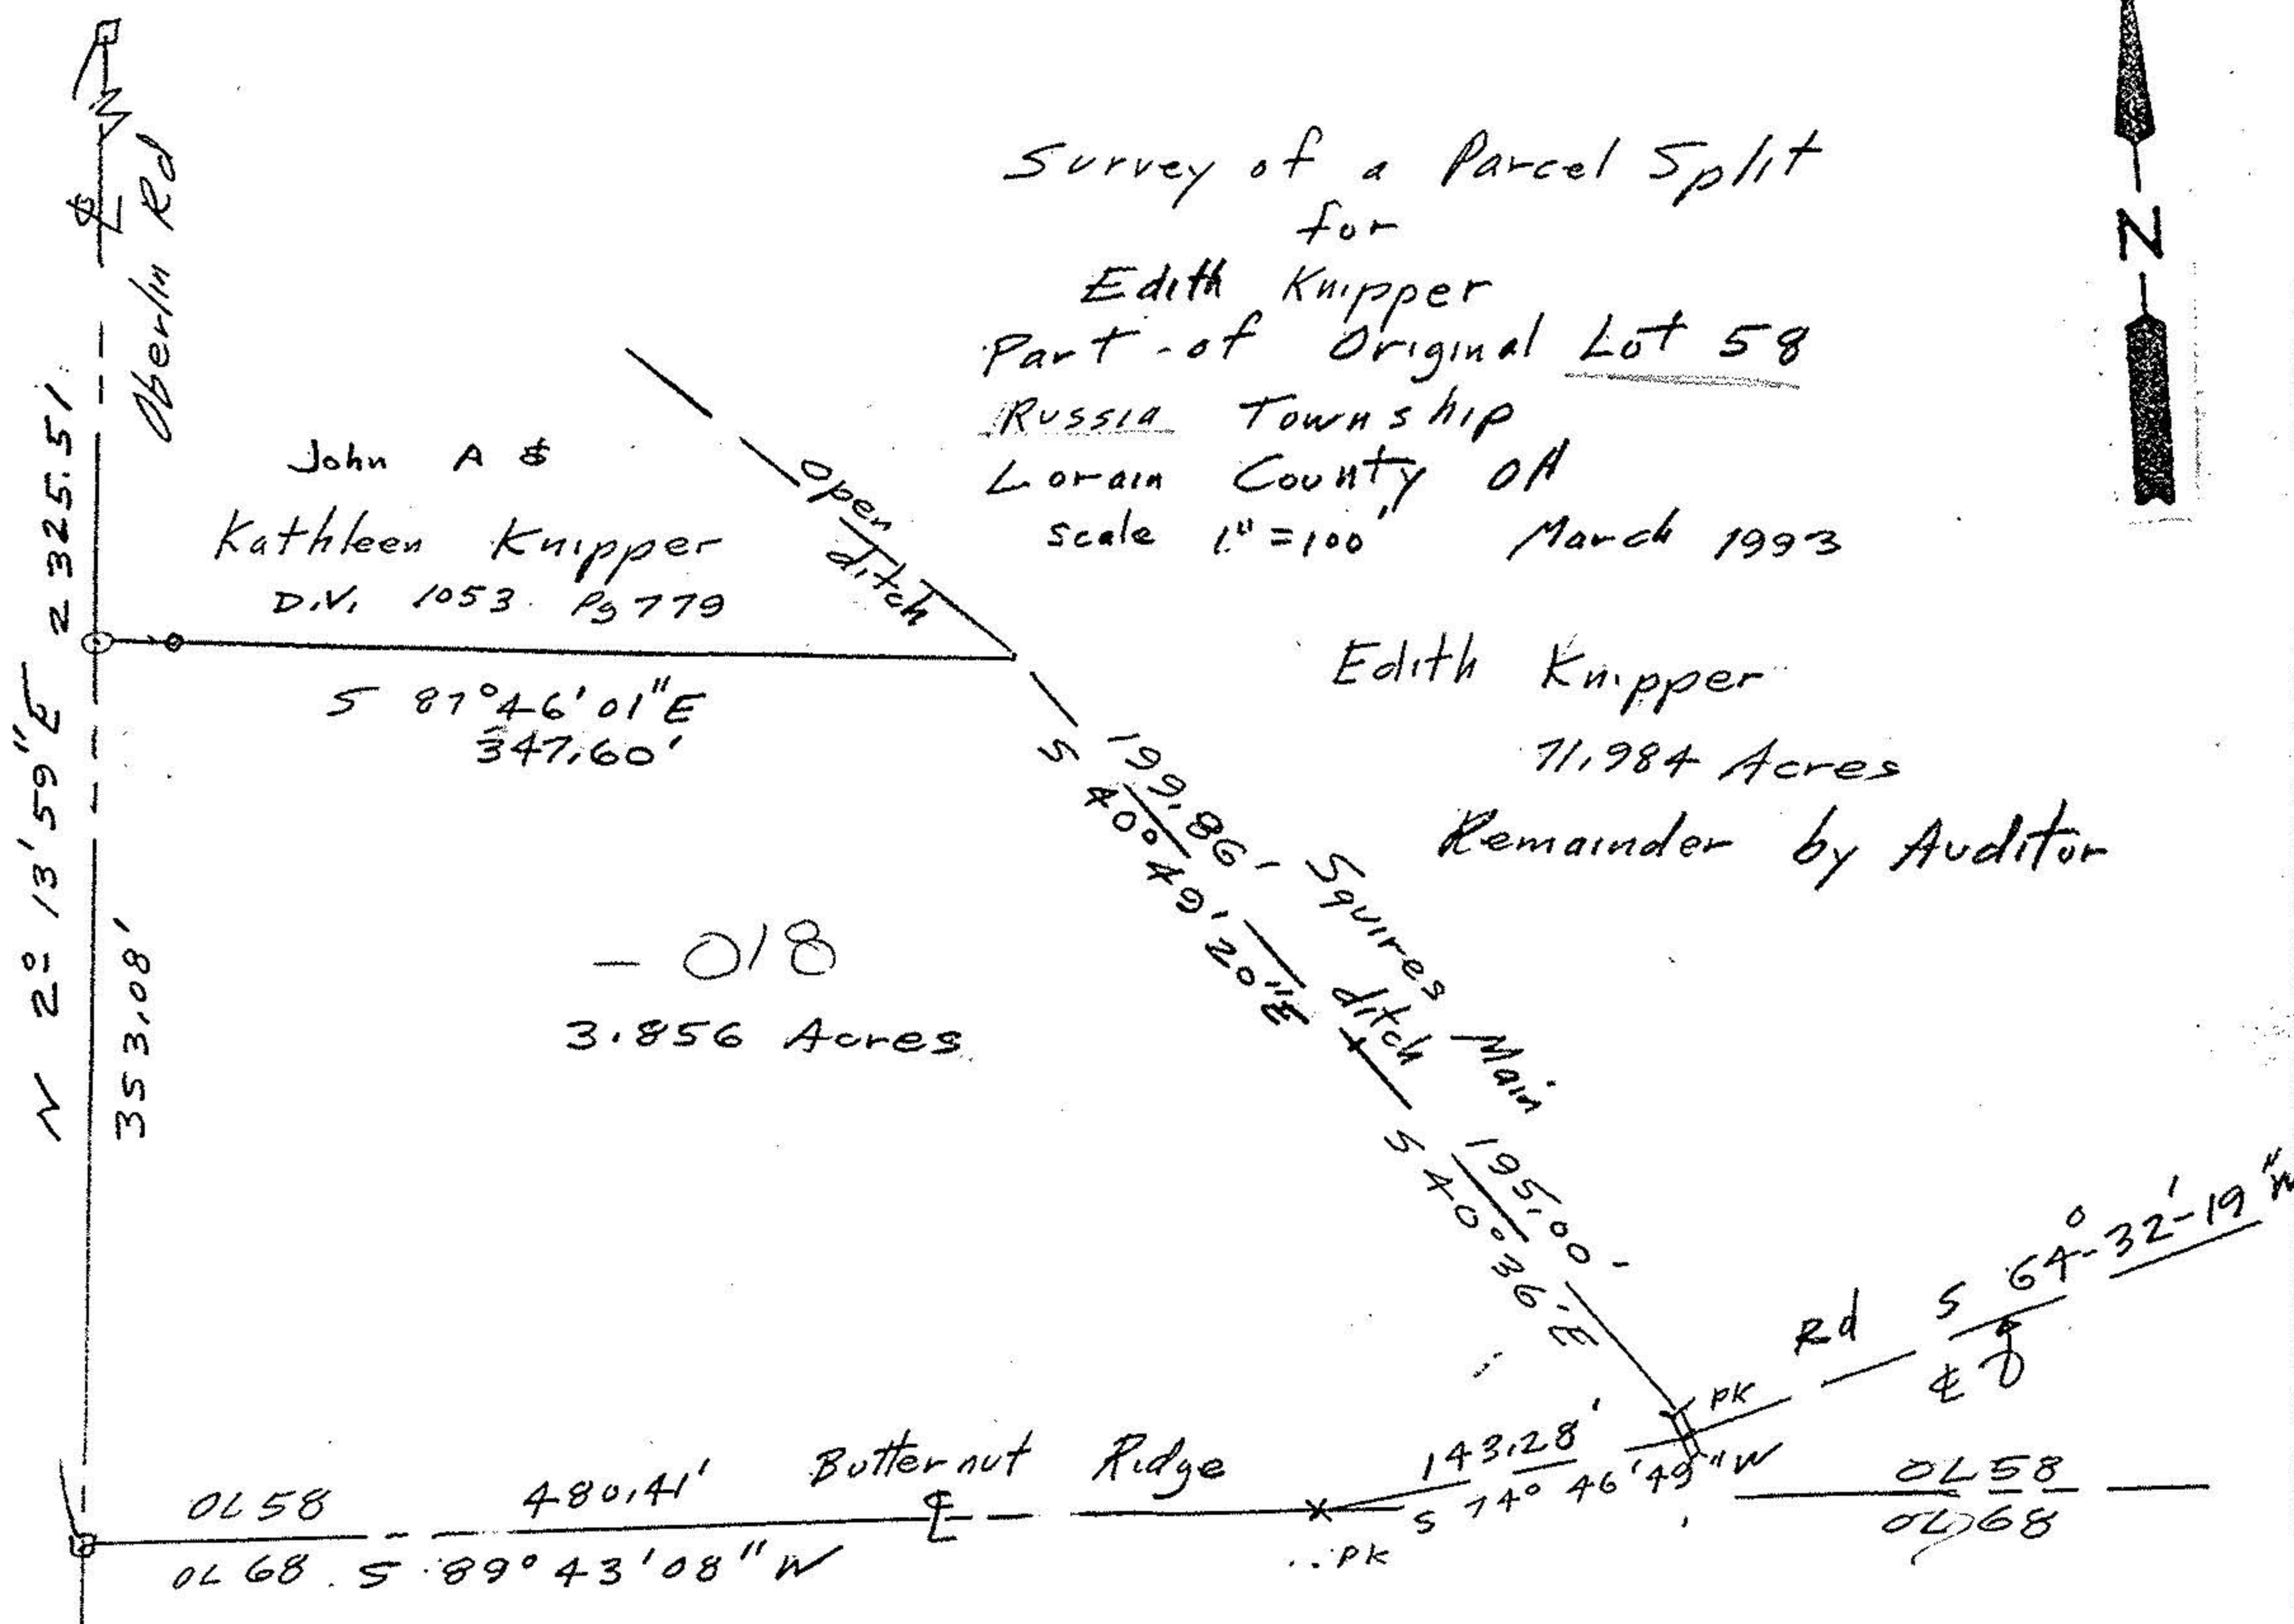 Survey of a Parcel Split
for
Edith Knipper
Part of Original Lot 58
Russia Township
Lorain County OH
scale 1" = 100' March 1993
N
Oberlin Rd
N 2° 13' 59" E 2325.51
353.08'
John A &
Kathleen Knipper
D.V. 1053 Pg 779
open
ditch
S 87° 46' 01" E
347.60'
Edith Knipper
71.984 Acres
Remainder by Auditor
199.86'
S 40° 49' 20" E
Squires Main
ditch
- 018
3.856 Acres
195.00'
S 40° 36' E
Rd S 64°-32'-19" W
℄
PK
143.28'
S 74° 46' 49" W
OL 58
OL 68
OL 58 480.41' Butternut Ridge
℄
OL 68 S 89° 43' 08" W
PK